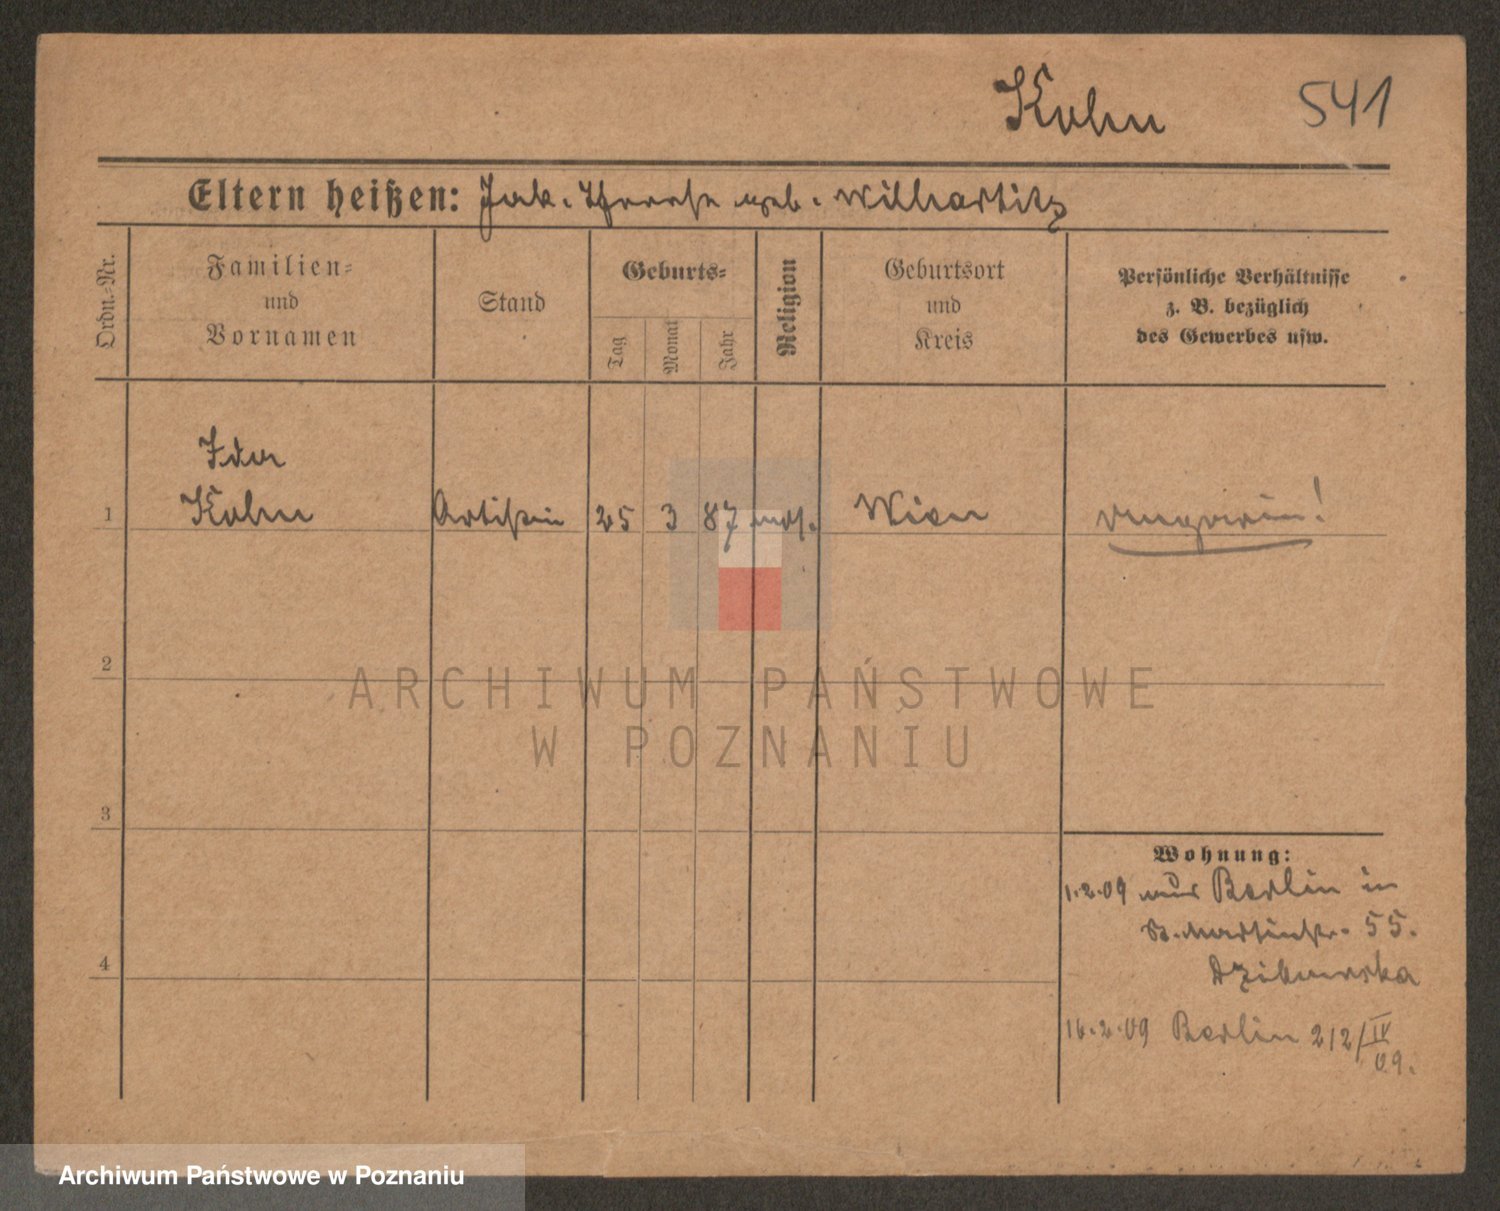 Kohn 541
Eltern heißen: Jak. Therese geb. Willhartitz
Ordn.-Nr.
Familien-
und
Vornamen
Stand
Geburts-
Tag
Monat
Jahr
Religion
Geburtsort
und
Kreis
Persönliche Verhältnisse
z. B. bezüglich
des Gewerbes usw.
Ida
1 Kohn Artistin 25 3 87 mos. Wien
2
3
4
Wohnung:
1.2.09 aus Berlin in
St. Martinstr. 55.
16.2.09 Berlin 212/IV
09.
ARCHIWUM PAŃSTWOWE
W POZNANIU
Archiwum Państwowe w Poznaniu